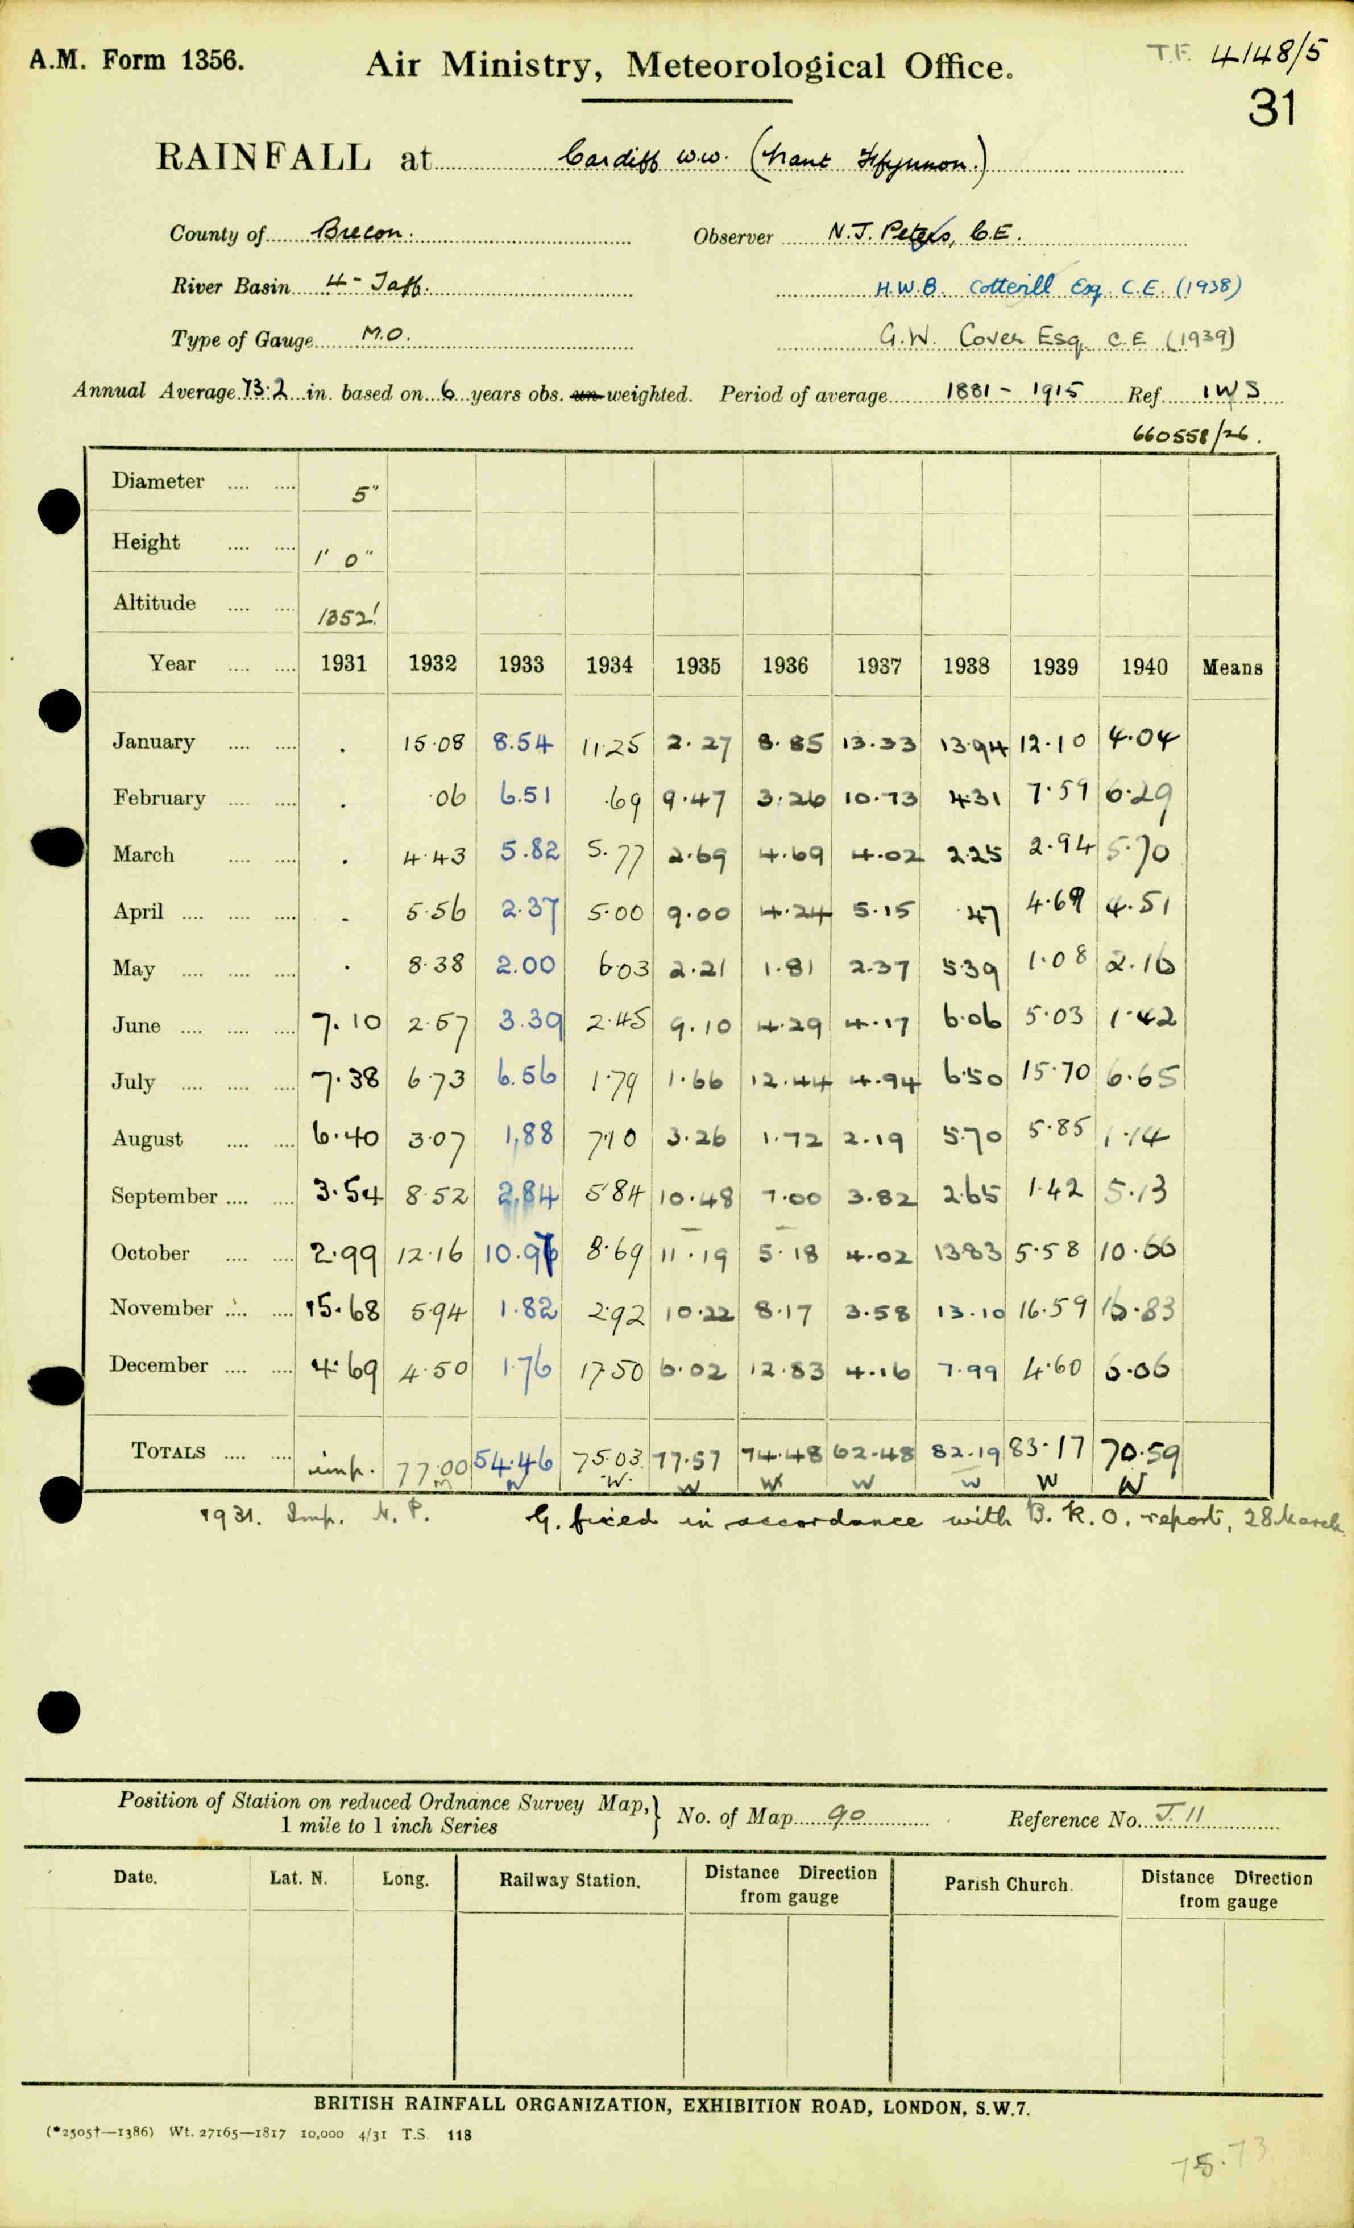 A.M. Form 1356.
Air Ministry, Meteorological Office.
T.F. 4148/5
31
RAINFALL at Cardiff W.W. (Nant Ffynnon.)
County of Brecon. Observer N.J. Peters, C.E.
River Basin 4 - Taff. H.W.B. Cotterill Esq. C.E. (1938)
Type of Gauge M.O. G.W. Cover Esq. C.E (1939)
Annual Average 73.2 in. based on 6 years obs. un-weighted. Period of average 1881 - 1915 Ref 1WS
660558/26.
Diameter 5"
Height 1' 0"
Altitude 1352'
Year 1931 1932 1933 1934 1935 1936 1937 1938 1939 1940 Means
January . 15.08 8.54 11.25 2.27 8.85 13.33 13.94 12.10 4.04
February . .06 6.51 .69 9.47 3.26 10.73 4.31 7.59 6.29
March . 4.43 5.82 5.77 2.69 4.69 4.02 2.25 2.94 5.70
April . 5.56 2.37 5.00 9.00 4.24 5.15 .47 4.69 4.51
May . 8.38 2.00 6.03 2.21 1.81 2.37 5.39 1.08 2.16
June 7.10 2.57 3.39 2.45 9.10 4.29 4.17 6.06 5.03 1.42
July 7.38 6.73 6.56 1.79 1.66 12.44 4.94 6.50 15.70 6.65
August 6.40 3.07 1.88 7.10 3.26 1.72 2.19 5.70 5.85 1.14
September 3.54 8.52 2.84 5.84 10.48 7.00 3.82 2.65 1.42 5.13
October 2.99 12.16 10.97 8.69 11.19 5.18 4.02 13.83 5.58 10.66
November 15.68 5.94 1.82 2.92 10.22 8.17 3.58 13.10 16.59 16.83
December 4.69 4.50 1.76 17.50 6.02 12.83 4.16 7.99 4.60 6.06
TOTALS imp. 77.00 54.46 75.03 77.57 74.48 62.48 82.19 83.17 70.59
m W W W W W W W W
1931. Imp. N.P. G. fixed in accordance with B.R.O. report, 28 March
Position of Station on reduced Ordnance Survey Map, 1 mile to 1 inch Series } No. of Map 90 Reference No. J.11
Date. Lat. N. Long. Railway Station. Distance Direction from gauge Parish Church. Distance Direction from gauge
BRITISH RAINFALL ORGANIZATION, EXHIBITION ROAD, LONDON, S.W.7.
(*2505†—1386) Wt. 27165—1817 10,000 4/31 T.S. 118
75.73